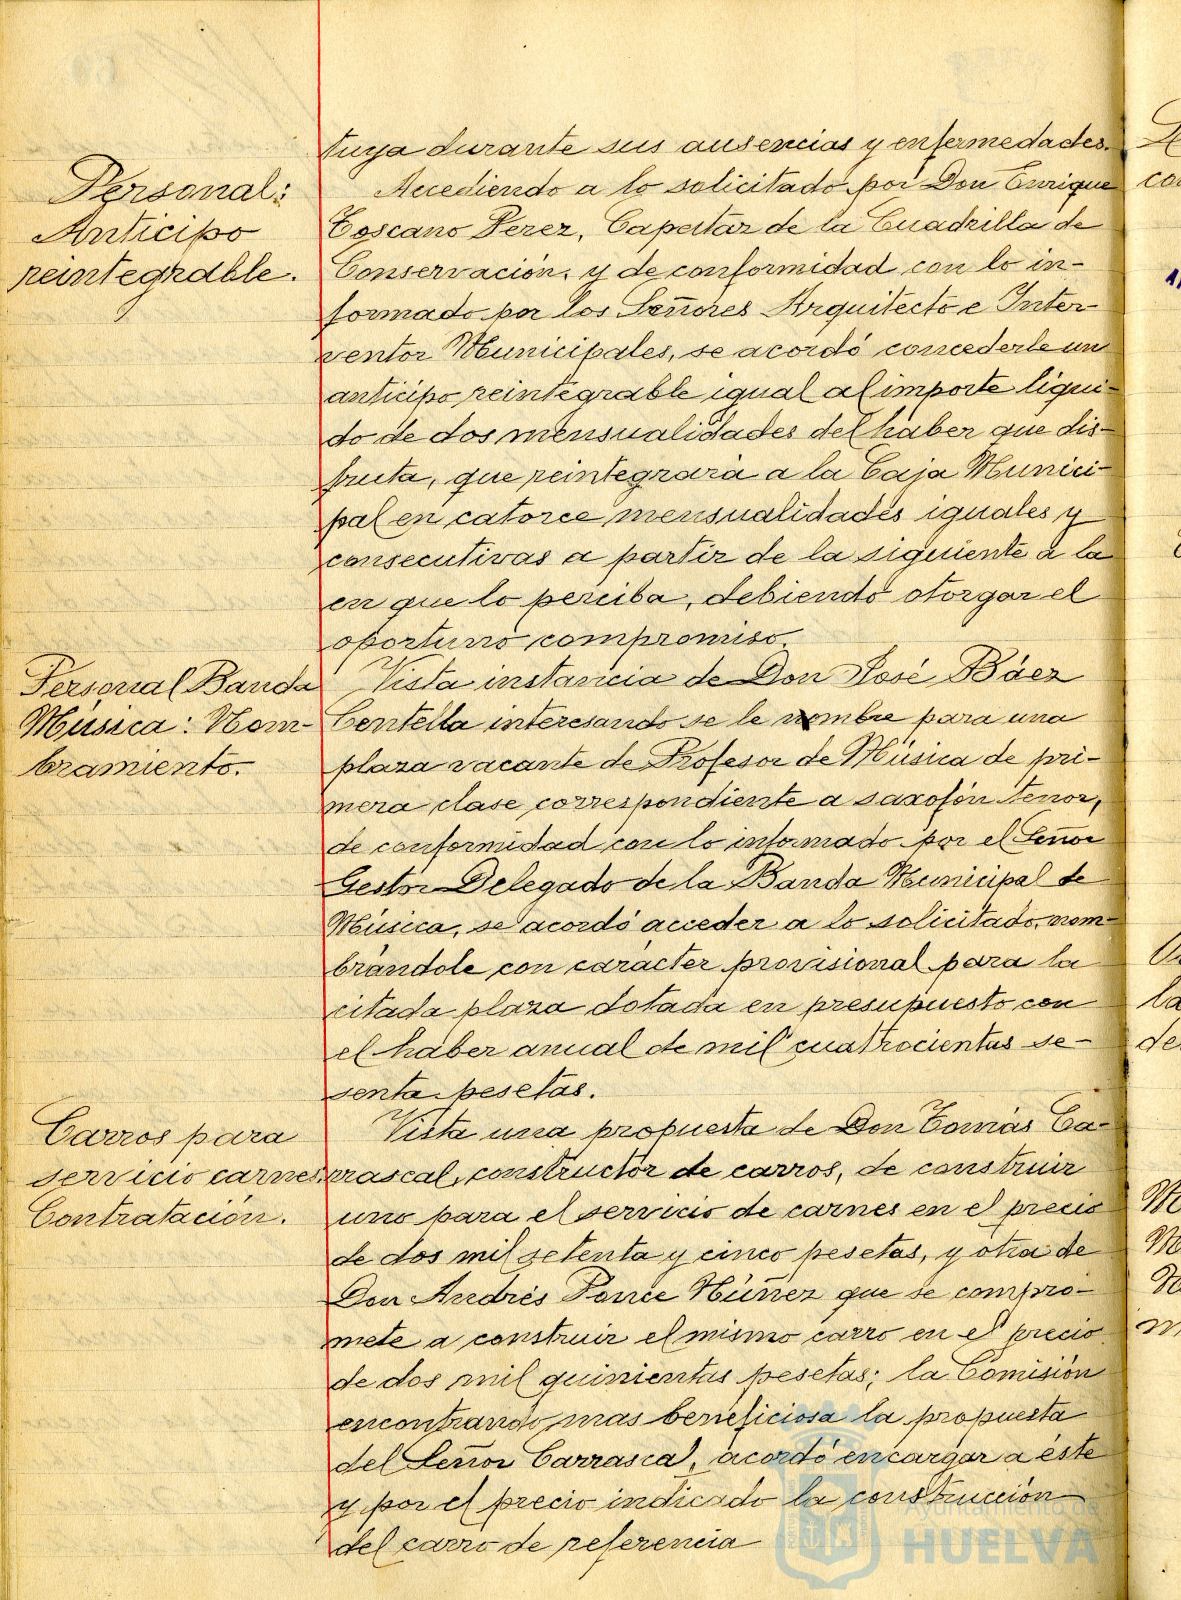 tuya durante sus ausencias y enfermedades.
Personal:
Anticipo
reintegrable.
Accediendo a lo solicitado por Don Enrique
Toscano Perez, Capataz de la Cuadrilla de
Conservación, y de conformidad con lo in-
formado por los Señores Arquitecto e Inter-
ventor Municipales, se acordó concederle un
anticipo reintegrable igual al importe liqui-
do de dos mensualidades del haber que dis-
fruta, que reintegrará a la Caja Munici-
pal en catorce mensualidades iguales y
consecutivas a partir de la siguiente a la
en que lo perciba, debiendo otorgar el
oportuno compromiso.
Personal Banda
Música: Nom-
bramiento.
Vista instancia de Don José Báez
Contella interesando se le nombre para una
plaza vacante de Profesor de Música de pri-
mera clase correspondiente a saxofón tenor,
de conformidad con lo informado por el Señor
Gestor Delegado de la Banda Municipal de
Música, se acordó acceder a lo solicitado, nom-
brándole con carácter provisional para la
citada plaza dotada en presupuesto con
el haber anual de mil cuatrocientas se-
senta pesetas.
Carros para
servicio carnes.
Contratación.
Vista una propuesta de Don Tomás Ca-
rrascal, constructor de carros, de construir
uno para el servicio de carnes en el precio
de dos mil setenta y cinco pesetas, y otra de
Don Andrés Ponce Núñez que se compro-
mete a construir el mismo carro en el precio
de dos mil quinientas pesetas; la Comisión
encontrando mas beneficiosa la propuesta
del Señor Carrascal, acordó encargar a éste
y por el precio indicado la construcción
del carro de referencia
Ayuntamiento de
HUELVA